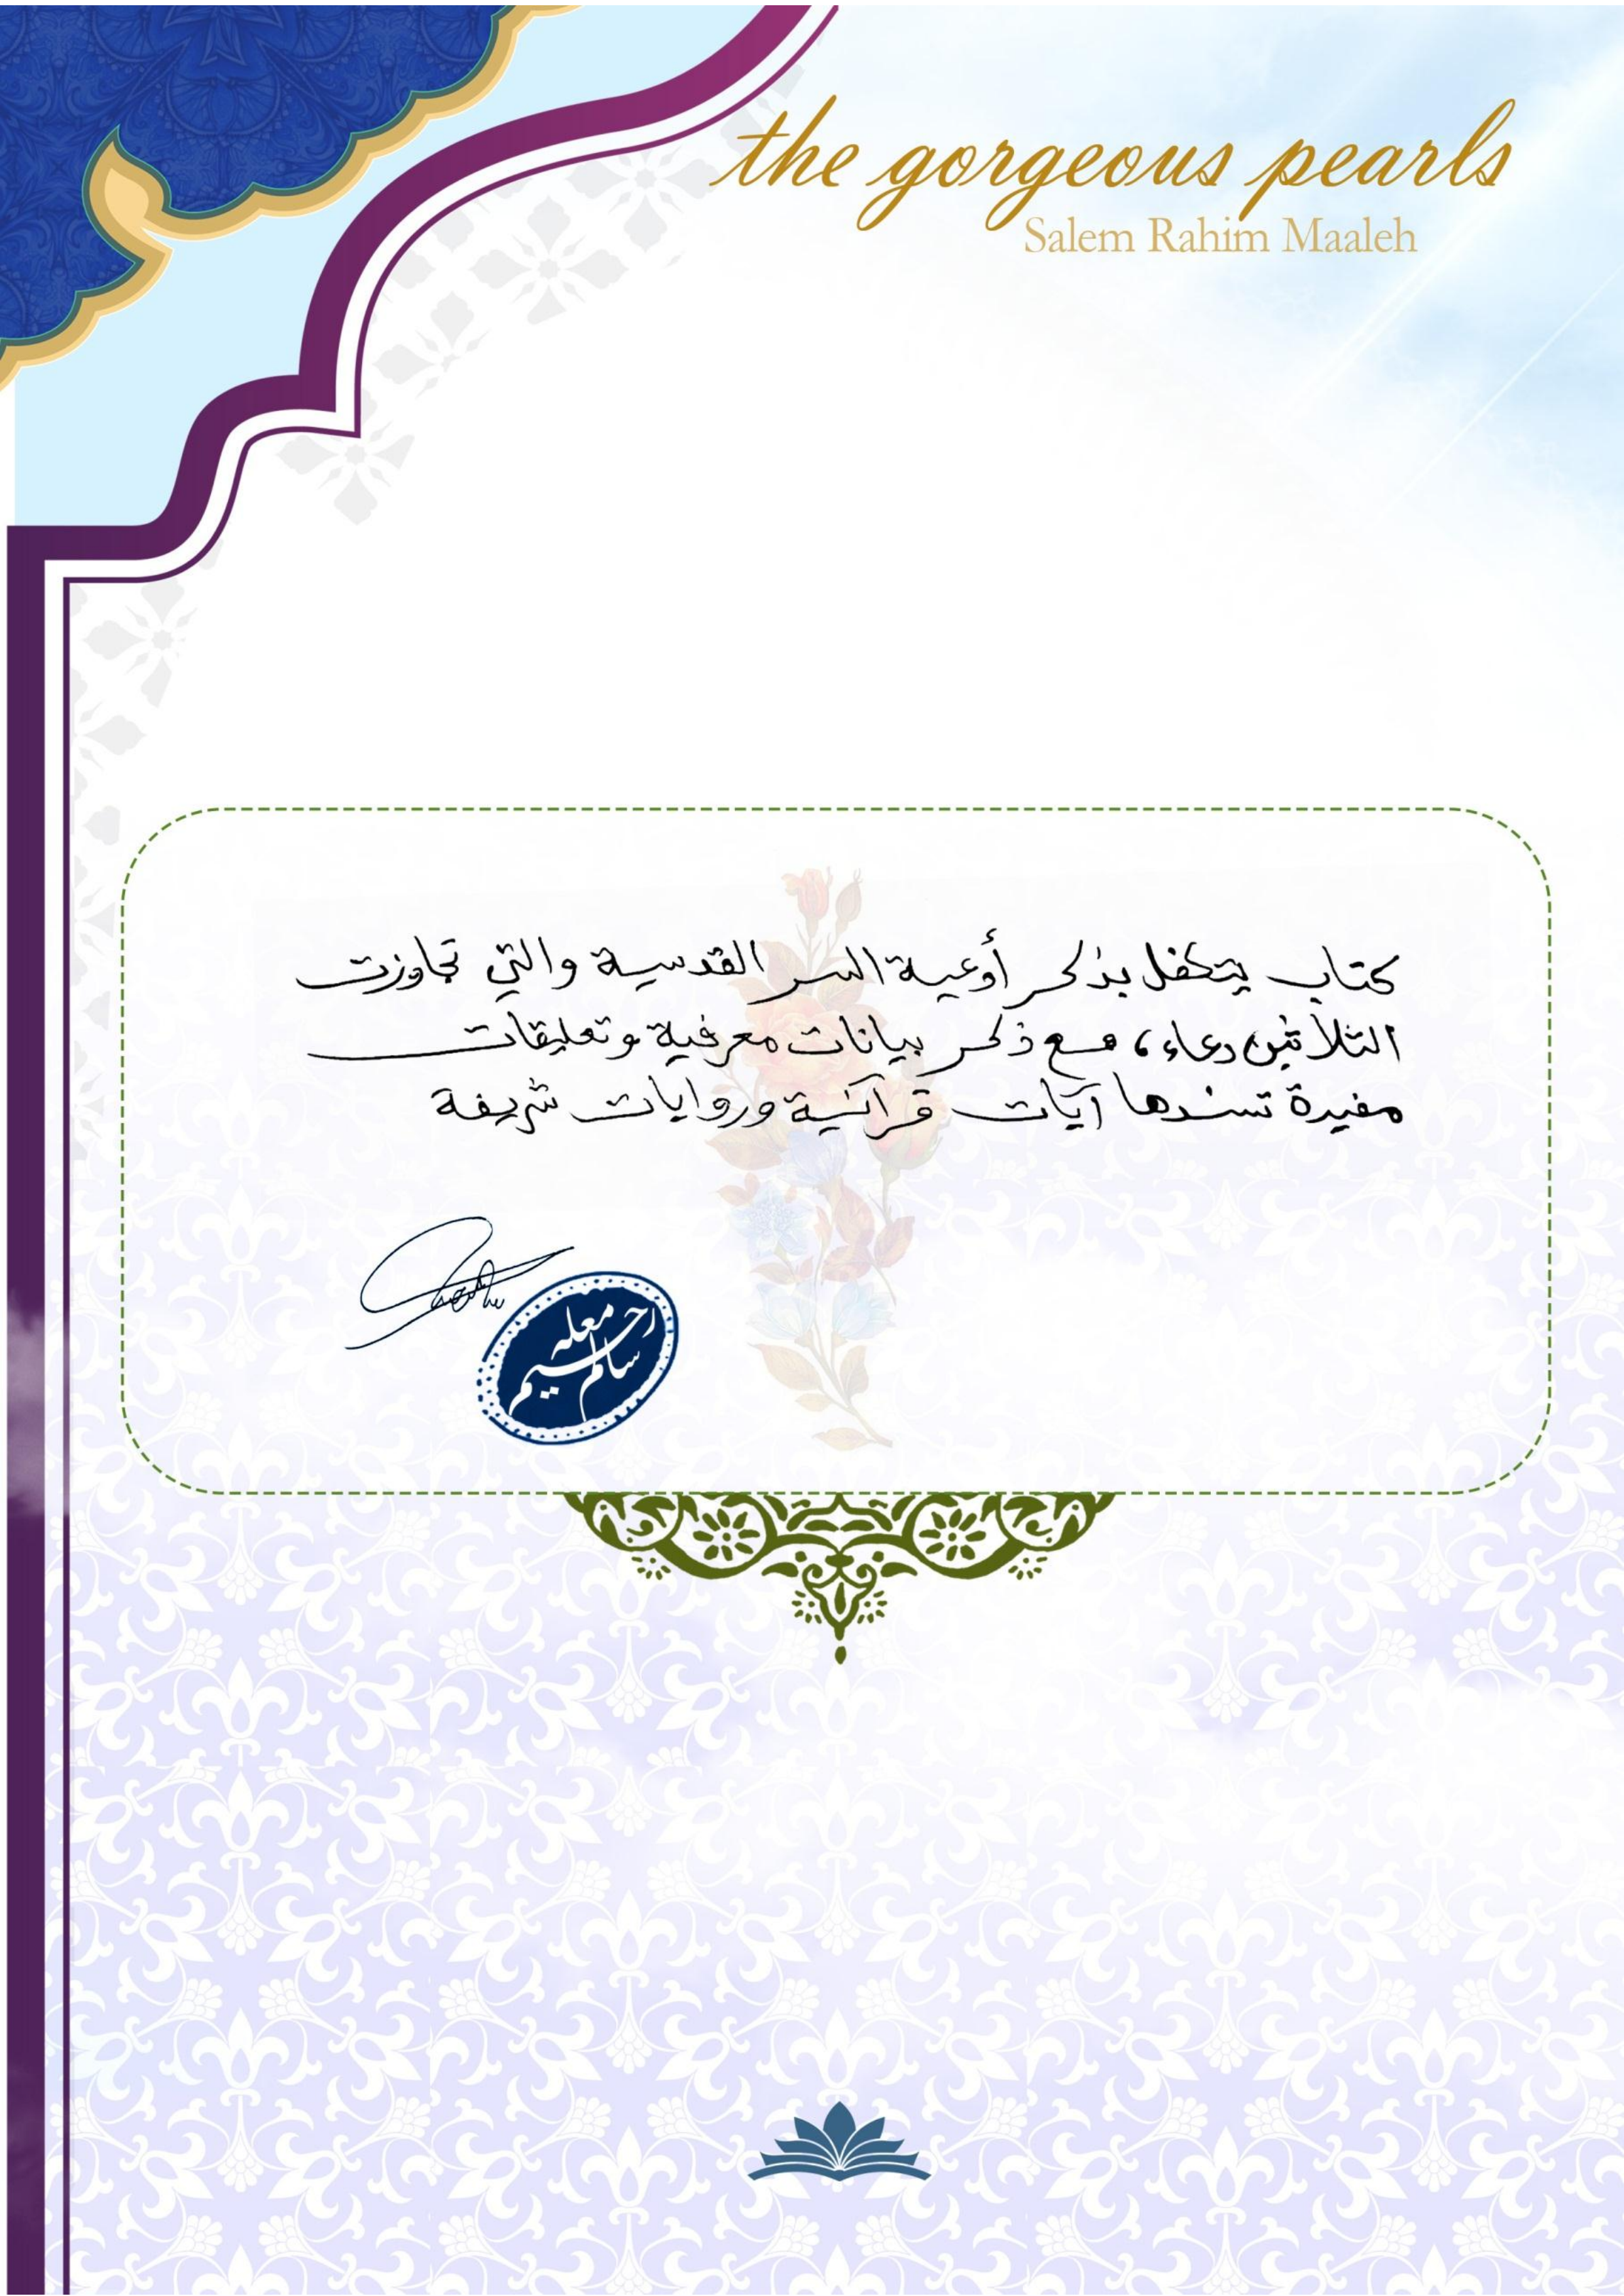 the gorgeous pearls
Salem Rahim Maaleh
كتاب يتكفل بذكر أدعية السر القدسية والتي تجاوزت
الثلاثين دعاء، مع ذكر بيانات معرفية وتعليقات
مفيدة تسندها آيات قرآنية وروايات شريفة
معله
رحيم
سالم